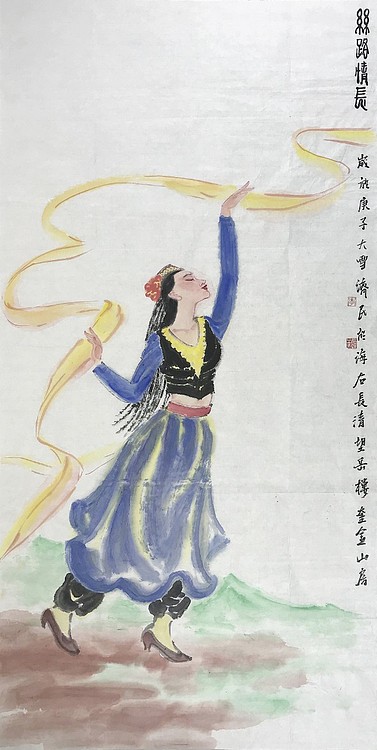 絲路情長
歲於庚子大雪濟民於海右長清望岳樓奎金山房